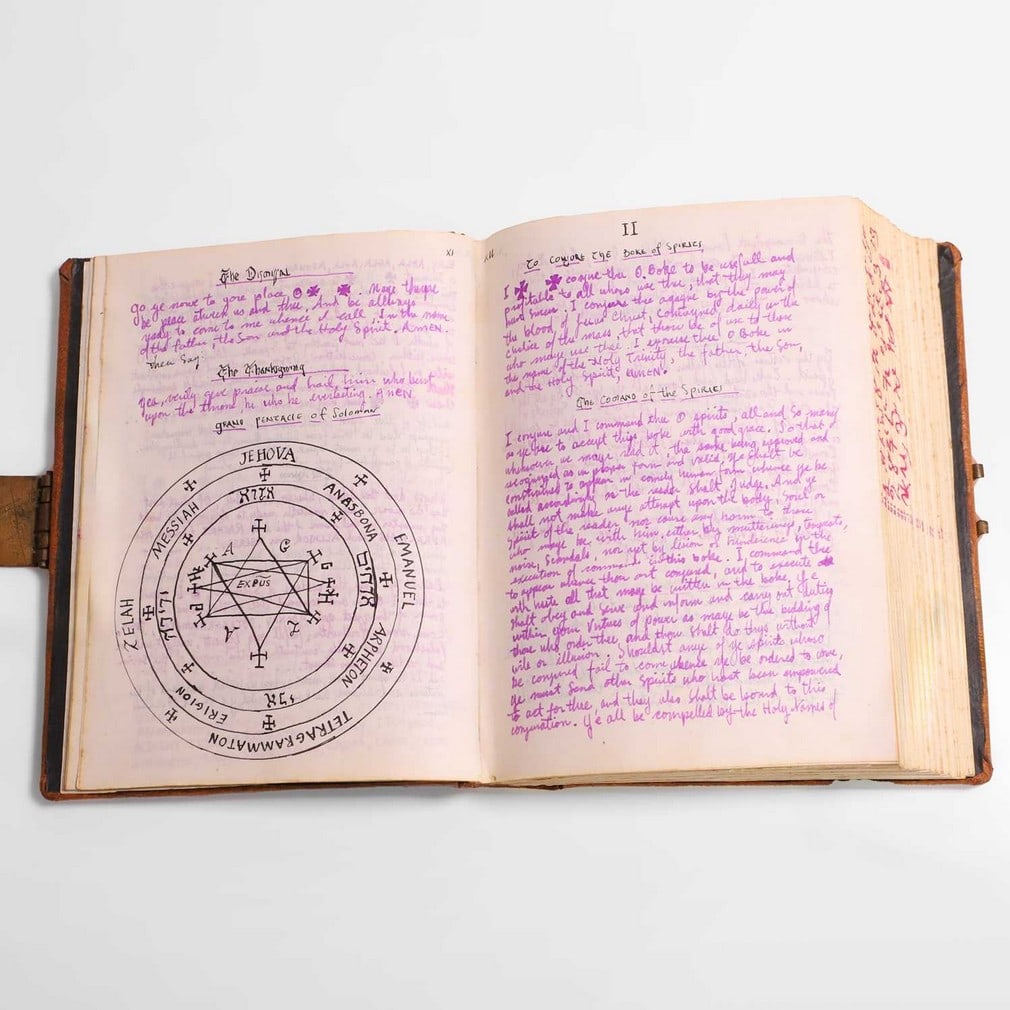 XI
The Dismysal
go ye nowe to yore place
be peace atween us and thee. And be allways
ready to come to me whence I call, In the name
of the father, the Son and the Holy Spirit, AMEN.
Then Say:
The Thanksgiving
Yea, verily give praise and hail him who
upon the throne, he who be everlasting. AMEN.
GRAND PENTACLE of SOLOMON
JEHOVA
ANASBONA
EMANUEL
ARPHETON
TETRAGRAMMATON
ERIGION
ZELAH
MESSIAH
A G
EXPUS
A L
II
To CONJURE THE BOKE of SPIRITS
O Boke to be usefull and
profitable to all whose use thee, that they may
have I conjure thee agayne by the power of
the blood of Jesus Christ, contayned daily in the
chalice of the mass, that thou be of use to those
who maye use thee. I exorcise thee O Boke in
the name of the Holy Trinity, the father, the Son,
and the Holy Spirit, AMEN.
The COMAND of the SPIRITS
I conjure and I command thee O spirits, all and so many
as ye be to accept thys boke with good grace, so that
whensoever we maye read it, the same being approved and
recognized as in proper form and valid, ye shalt be
constrained to appear in comely human form whence ye be
called accordingly as the reader shall judge. And ye
shall not make anye attempt upon the body, soul or
spirit of the reader, nor cause any harm to those
who maye be with him, either by mutterings, tempests,
noise, scandals, no yet by lesion or hinderence in the
execution of commands in this boke. I command thee
to appear whence thou art conjured, and to execute
all that maye be written in the boke. Ye
shalt obey and serve and inform and carry out duties
within your virtues of power as maye be the bidding of
those who order thee, and thou shalt do thys without
vile or illusion. Shouldst anye of ye spirits whose
be conjured fail to come whence ye be ordered to come,
ye must send other spirits who hast been empowered
to act for thee, and they also shalt be bound to this
conjuration. Ye all be compelled by the Holy Names of